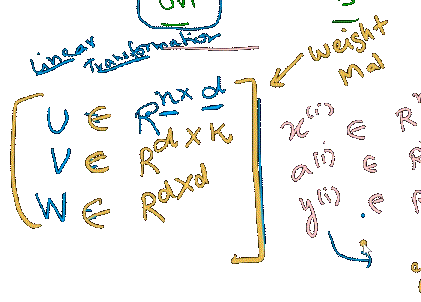 Linear
Transformation
Weight
Mat
U ∈ R^n×d
V ∈ R^d×K
W ∈ R^d×d
x^(i) ∈ R
a^(i) ∈ R
y^(i) ∈ R